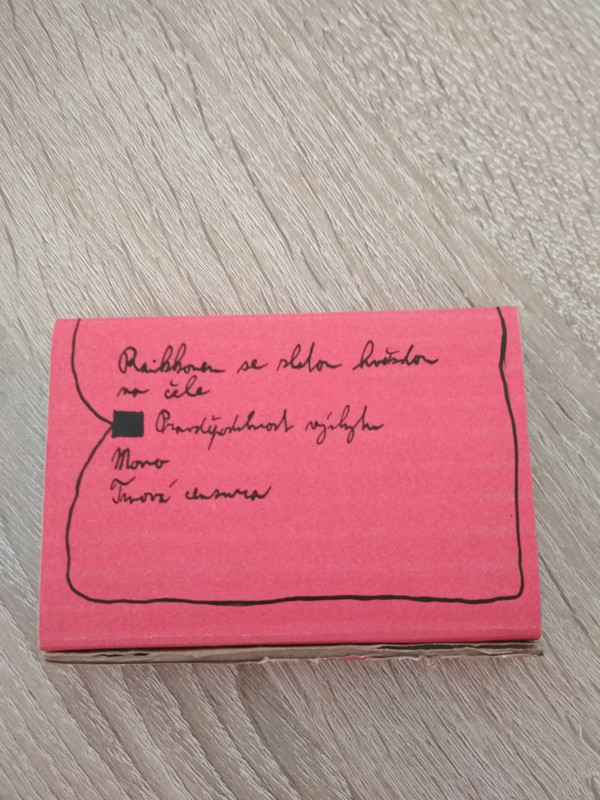 Raikkonen se zlatou hvězdou
na čele
Pravděpodobnost výskytu
Mono
Tmová censura